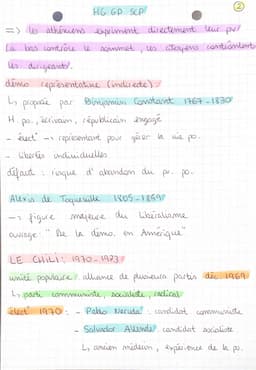 HG GP SCP
2
=> les athéniens expriment directement leur pv
Le bas contrôle le sommet, les citoyens contrôlent
les dirigeants.
démo représentative (indirecte)
↳ proposée par Benjamin Constant 1767-1830
H. po., écrivain, républicain engagé
- élect° → représentant pour gérer la vie po.
- libertés individuelles
défaut : risque d'abandon du pv. po.
Alexis de Tocqueville 1805-1859
→ figure majeure du libéralisme
ouvrage : "De la démo. en Amérique"
LE CHILI : 1970-1973
unité populaire : alliance de plusieurs partis déc 1969
↳ parti communiste, socialiste, radical
élect° 1970 : - Pablo Neruda : candidat communiste
- Salvador Allende : candidat socialiste
↳ ancien médecin, expérience de la po.